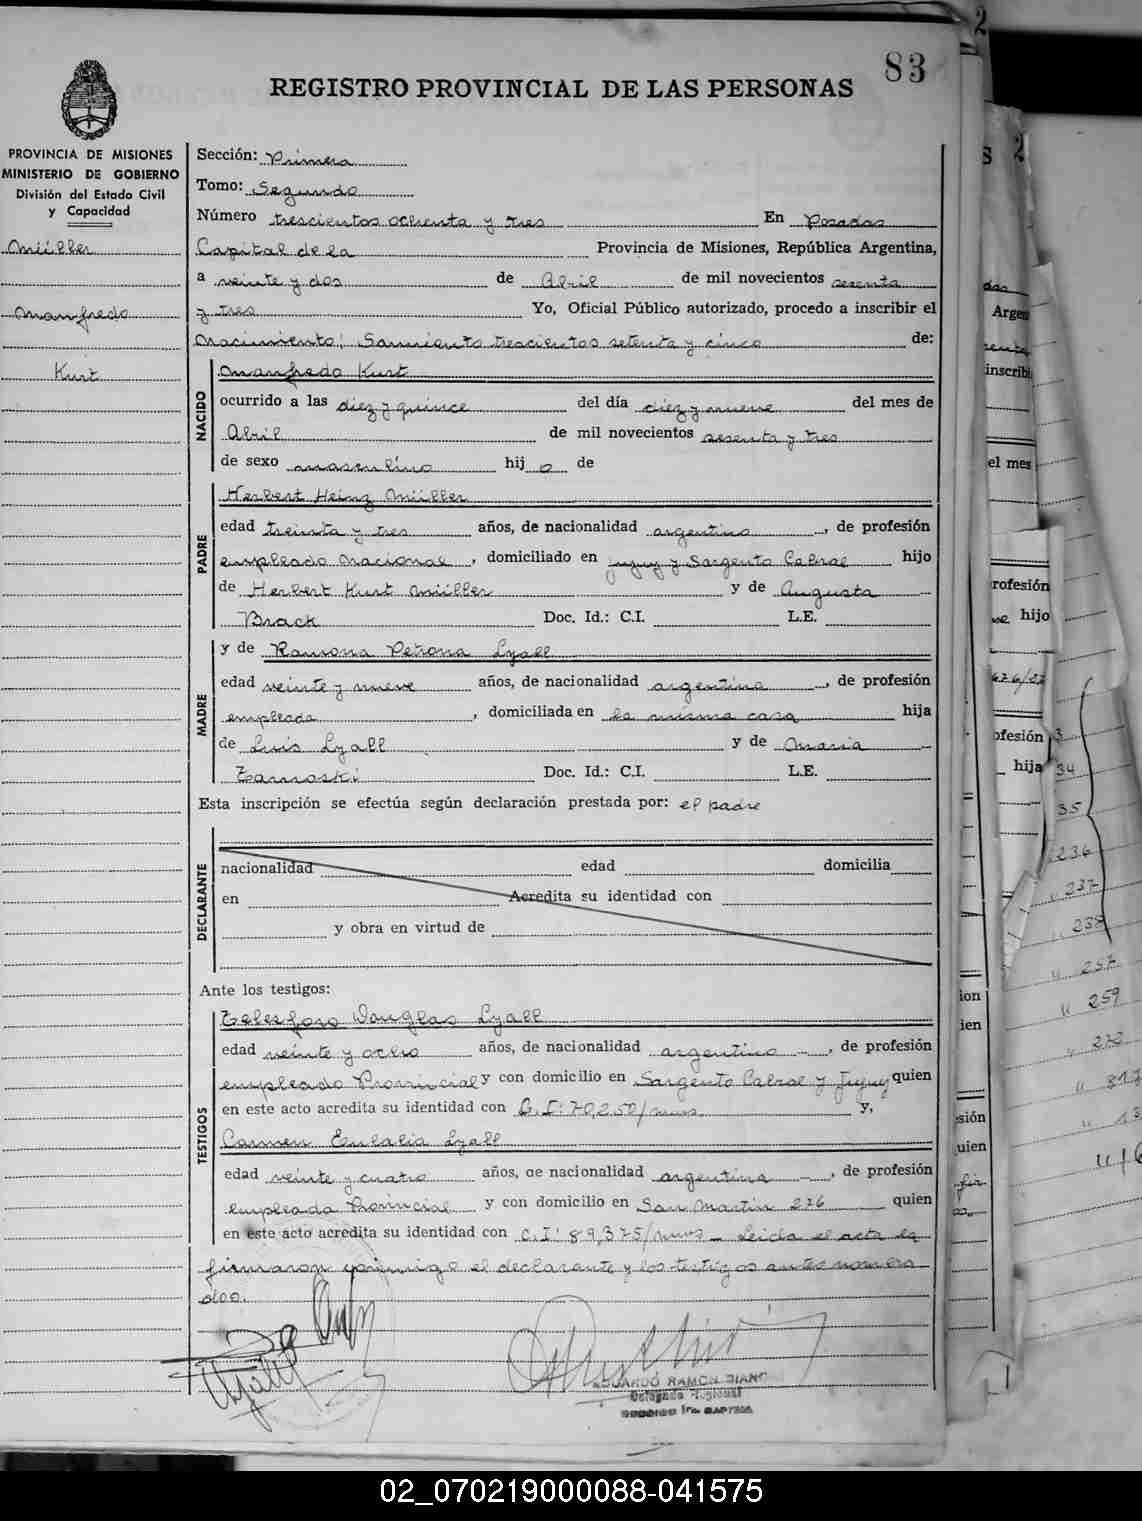 83
REGISTRO PROVINCIAL DE LAS PERSONAS
PROVINCIA DE MISIONES
MINISTERIO DE GOBIERNO
División del Estado Civil
y Capacidad
Müller
Manfredo
Kurt
Sección: Primera
Tomo: Segundo
Número trescientos ochenta y tres En Posadas
Capital de la Provincia de Misiones, República Argentina,
a veinte y dos de Abril de mil novecientos sesenta
y tres Yo, Oficial Público autorizado, procedo a inscribir el
Nacimiento: Sarmiento trescientos setenta y cinco de:
NACIDO
Manfredo Kurt
ocurrido a las diez y quince del día diez y nueve del mes de
Abril de mil novecientos sesenta y tres
de sexo masculino hijo de
PADRE
Herbert Heinz Müller
edad treinta y tres años, de nacionalidad argentino, de profesión
empleado Nacional, domiciliado en Jujuy y Sargento Cabral hijo
de Herbert Kurt Müller y de Augusta
Brack Doc. Id.: C.I. L.E.
MADRE
y de Ramona Petrona Lyall
edad veinte y nueve años, de nacionalidad argentina, de profesión
empleada, domiciliada en la misma casa hija
de Luis Lyall y de Maria
Zamoski Doc. Id.: C.I. L.E.
Esta inscripción se efectúa según declaración prestada por: el padre
DECLARANTE
nacionalidad edad domicilia
en Acredita su identidad con
y obra en virtud de
Ante los testigos:
TESTIGOS
Telesforo Douglas Lyall
edad veinte y ocho años, de nacionalidad argentino, de profesión
empleado Provincial y con domicilio en Sargento Cabral y Jujuy quien
en este acto acredita su identidad con C.I: 70,250/mnes. y,
Carmen Eulalia Lyall
edad veinte y cuatro años, de nacionalidad argentina, de profesión
empleada Provincial y con domicilio en San Martin 276 quien
en este acto acredita su identidad con C.I: 89,375/mnes Leida el acta la
firmaron conmigo el declarante y los testigos antes nombra
dos.
EDUARDO RAMON
Delegado Regional
02_070219000088-041575